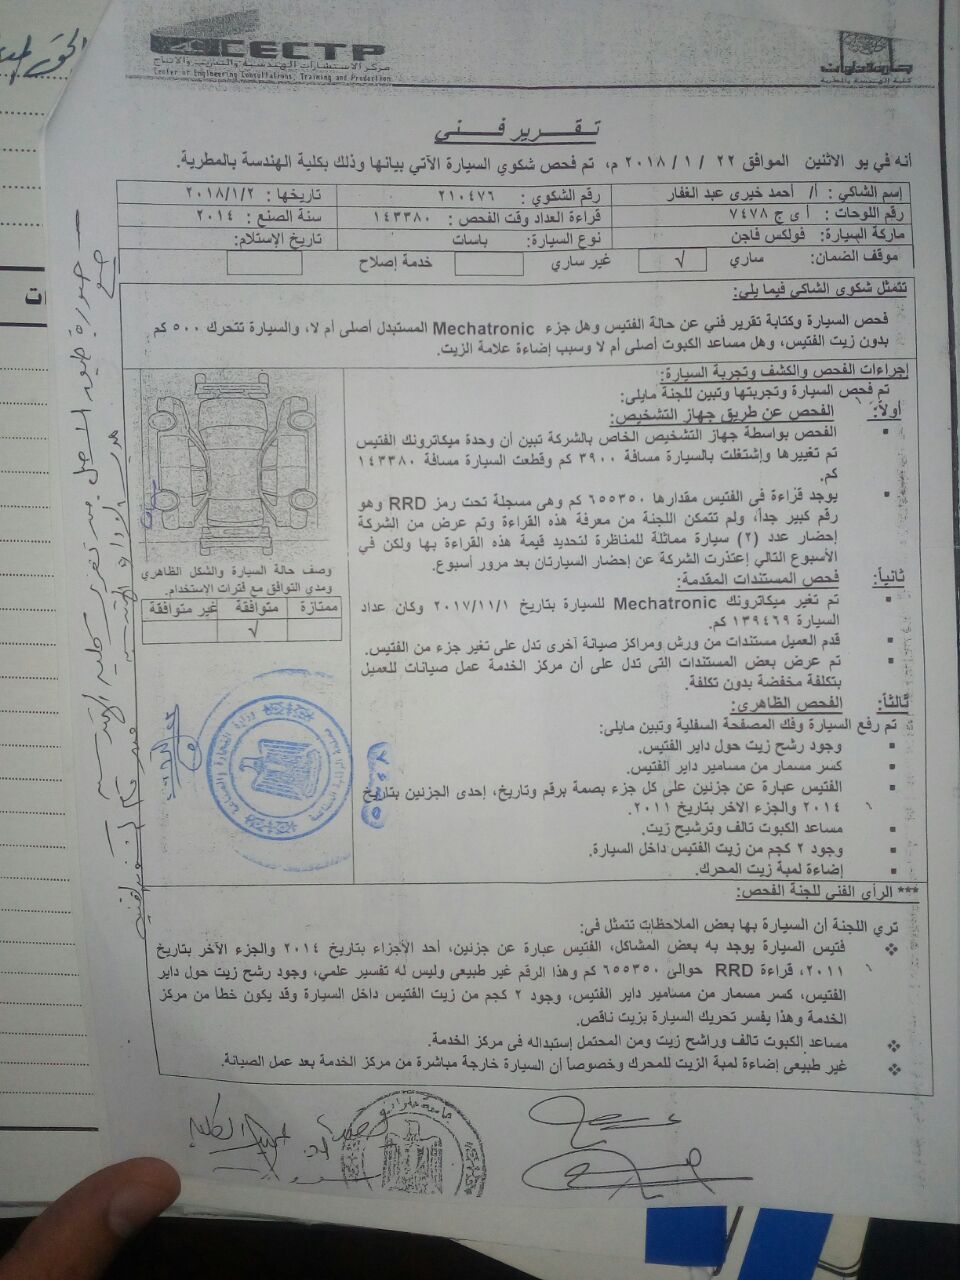 CECTP
مركز الاستشارات الهندسية والتدريب والانتاج
Center of Engineering Consultations, Training and Production
جامعة حلوان
كلية الهندسة بالمطرية
تقرير فني
أنه في يو الاثنين الموافق ٢٢ / ١ / ٢٠١٨ م، تم فحص شكوي السيارة الآتي بيانها وذلك بكلية الهندسة بالمطرية.
إسم الشاكي : أ/ أحمد خيرى عبد الغفار رقم الشكوي : ٢١٠٤٧٦ تاريخها : ٢٠١٨/١/٢
رقم اللوحات : أ ى ج ٧٤٧٨ قراءة العداد وقت الفحص : ١٤٣٣٨٠ سنة الصنع : ٢٠١٤
ماركة السيارة: فولكس فاجن نوع السيارة: باسات تاريخ الإستلام:
موقف الضمان: ساري √ غير ساري خدمة إصلاح
تتمثل شكوى الشاكي فيما يلي:
فحص السيارة وكتابة تقرير فني عن حالة الفتيس وهل جزء Mechatronic المستبدل أصلى أم لا، والسيارة تتحرك ٥٠٠ كم
بدون زيت الفتيس، وهل مساعد الكبوت أصلى أم لا وسبب إضاءة علامة الزيت.
إجراءات الفحص والكشف وتجربة السيارة:
تم فحص السيارة وتجربتها وتبين للجنة مايلى:
أولاً: الفحص عن طريق جهاز التشخيص:
▪ الفحص بواسطة جهاز التشخيص الخاص بالشركة تبين أن وحدة ميكاترونك الفتيس
تم تغييرها وإشتغلت بالسيارة مسافة ٣٩٠٠ كم وقطعت السيارة مسافة ١٤٣٣٨٠
كم.
▪ يوجد قزاءة فى الفتيس مقدارها ٦٥٥٣٥٠ كم وهى مسجلة تحت رمز RRD وهو
رقم كبير جداً، ولم تتمكن اللجنة من معرفة هذه القراءة وتم عرض من الشركة
إحضار عدد (٢) سيارة مماثلة للمناظرة لتحديد قيمة هذه القراءة بها ولكن في
الأسبوع التالي إعتذرت الشركة عن إحضار السيارتان بعد مرور أسبوع.
ثانياً: فحص المستندات المقدمة:
▪ تم تغير ميكاترونك Mechatronic للسيارة بتاريخ ٢٠١٧/١١/١ وكان عداد
السيارة ١٣٩٤٦٩ كم.
▪ قدم العميل مستندات من ورش ومراكز صيانة آخرى تدل على تغير جزء من الفتيس.
▪ تم عرض بعض المستندات التى تدل على أن مركز الخدمة عمل صيانات للعميل
بتكلفة مخفضة بدون تكلفة.
ثالثاً: الفحص الظاهري:
تم رفع السيارة وفك المصفحة السفلية وتبين مايلى:
▪ وجود رشح زيت حول داير الفتيس.
▪ كسر مسمار من مسامير داير الفتيس.
▪ الفتيس عبارة عن جزئين على كل جزء بصمة برقم وتاريخ، إحدى الجزئين بتاريخ
٢٠١٤ والجزء الاخر بتاريخ ٢٠١١.
▪ مساعد الكبوت تالف وترشيح زيت.
▪ وجود ٢ كجم من زيت الفتيس داخل السيارة.
▪ إضاءة لمبة زيت المحرك.
وصف حالة السيارة والشكل الظاهري
ومدي التوافق مع فترات الإستخدام.
ممتازة متوافقة غير متوافقة
√
وزارة التجارة والصناعة
*** الرأى الفني للجنة الفحص:
تري اللجنة أن السيارة بها بعض الملاحظات تتمثل فى:
❖ فتيس السيارة يوجد به بعض المشاكل، الفتيس عبارة عن جزئين، أحد الأجزاء بتاريخ ٢٠١٤ والجزء الآخر بتاريخ
٢٠١١، قراءة RRD حوالى ٦٥٥٣٥٠ كم وهذا الرقم غير طبيعى وليس له تفسير علمي، وجود رشح زيت حول داير
الفتيس، كسر مسمار من مسامير داير الفتيس، وجود ٢ كجم من زيت الفتيس داخل السيارة وقد يكون خطأ من مركز
الخدمة وهذا يفسر تحريك السيارة بزيت ناقص.
❖ مساعد الكبوت تالف وراشح زيت ومن المحتمل إستبداله فى مركز الخدمة.
❖ غير طبيعى إضاءة لمبة الزيت للمحرك وخصوصاً أن السيارة خارجة مباشرة من مركز الخدمة بعد عمل الصيانة.
عميد الكلية
جامعة حلوان